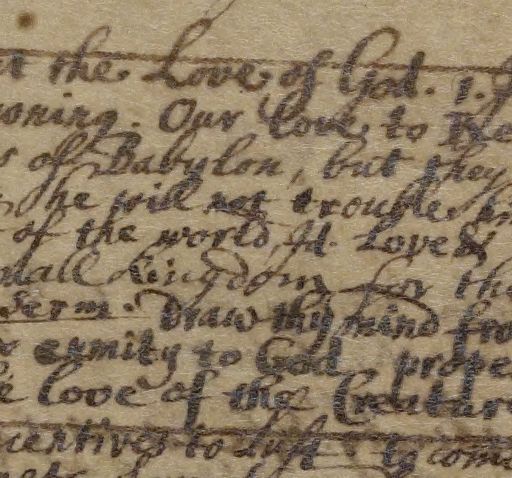 the Love of God. 1.
Our love to
of Babylon, but they
he will not trouble
of the world, Id. Love
Kingdom for the
Serm. Draw thy mind from
enmity to God prope
love of the Creature
incentives to Lust